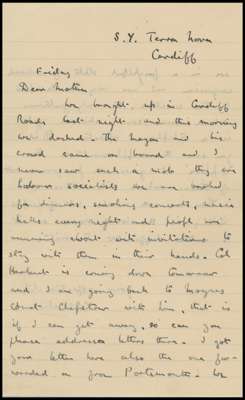 S.Y. Terra Nova
Cardiff
Friday
Dear Mother
We brought up in Cardiff
Roads last night and this morning
we docked. The Mayor and his
crowd came on board and I
never saw such a mob they are
Labour socialists we are booked
for dinners, smoking concerts, music
halls every night and people are
running about with invitations to
stay with them in their homes. Col
Herbert is coming down tomorrow
and I am going back to
Court Chepstow with him, that is
if I can get away. So can you
please address letters there. I got
your letter here also the one for-
warded on from Portsmouth. We